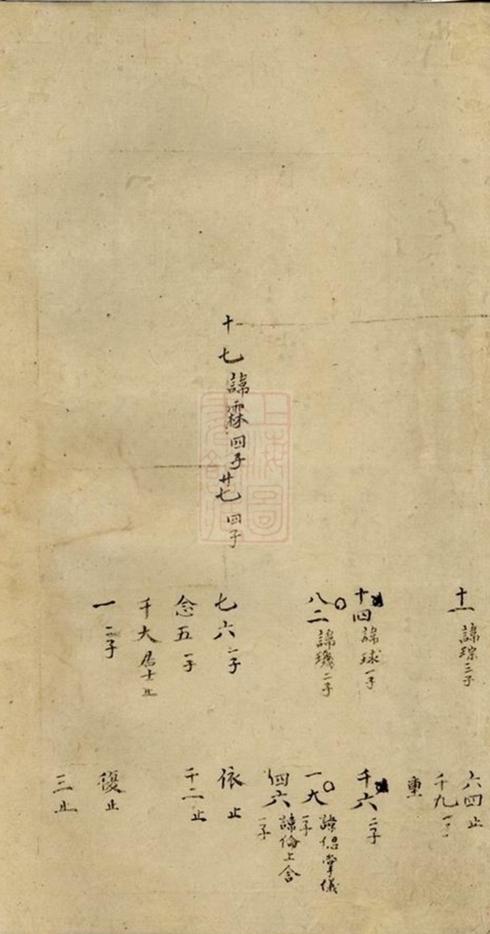 十七諱霖四子廿七四子
十一諱琮三子
十四諱球一子
八二諱璣二子
七六一子
念五一子
千大居士止
一二子
六四止
千九一子
重
千六二子
一大諱侣掌儀一子
四六諱倫上舍一子
依止
千二止
復止
三止
上海圖